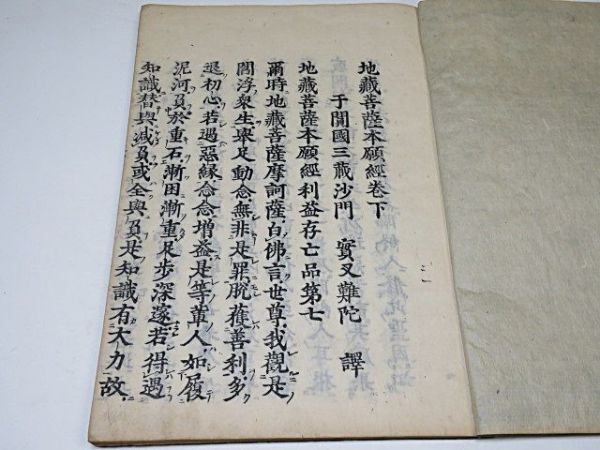 地藏菩薩本願經卷下
于闐國三藏沙門 實叉難陀 譯
地藏菩薩本願經利益存亡品第七
爾時地藏菩薩摩訶薩白佛言世尊我觀是
閻浮衆生舉足動念無非是罪脫獲善利多
退初心若遇惡緣念念增益是等輩人如履
泥河負於重石漸困漸重足步深邃若得遇
知識替與減負或全與負是知識有大力故